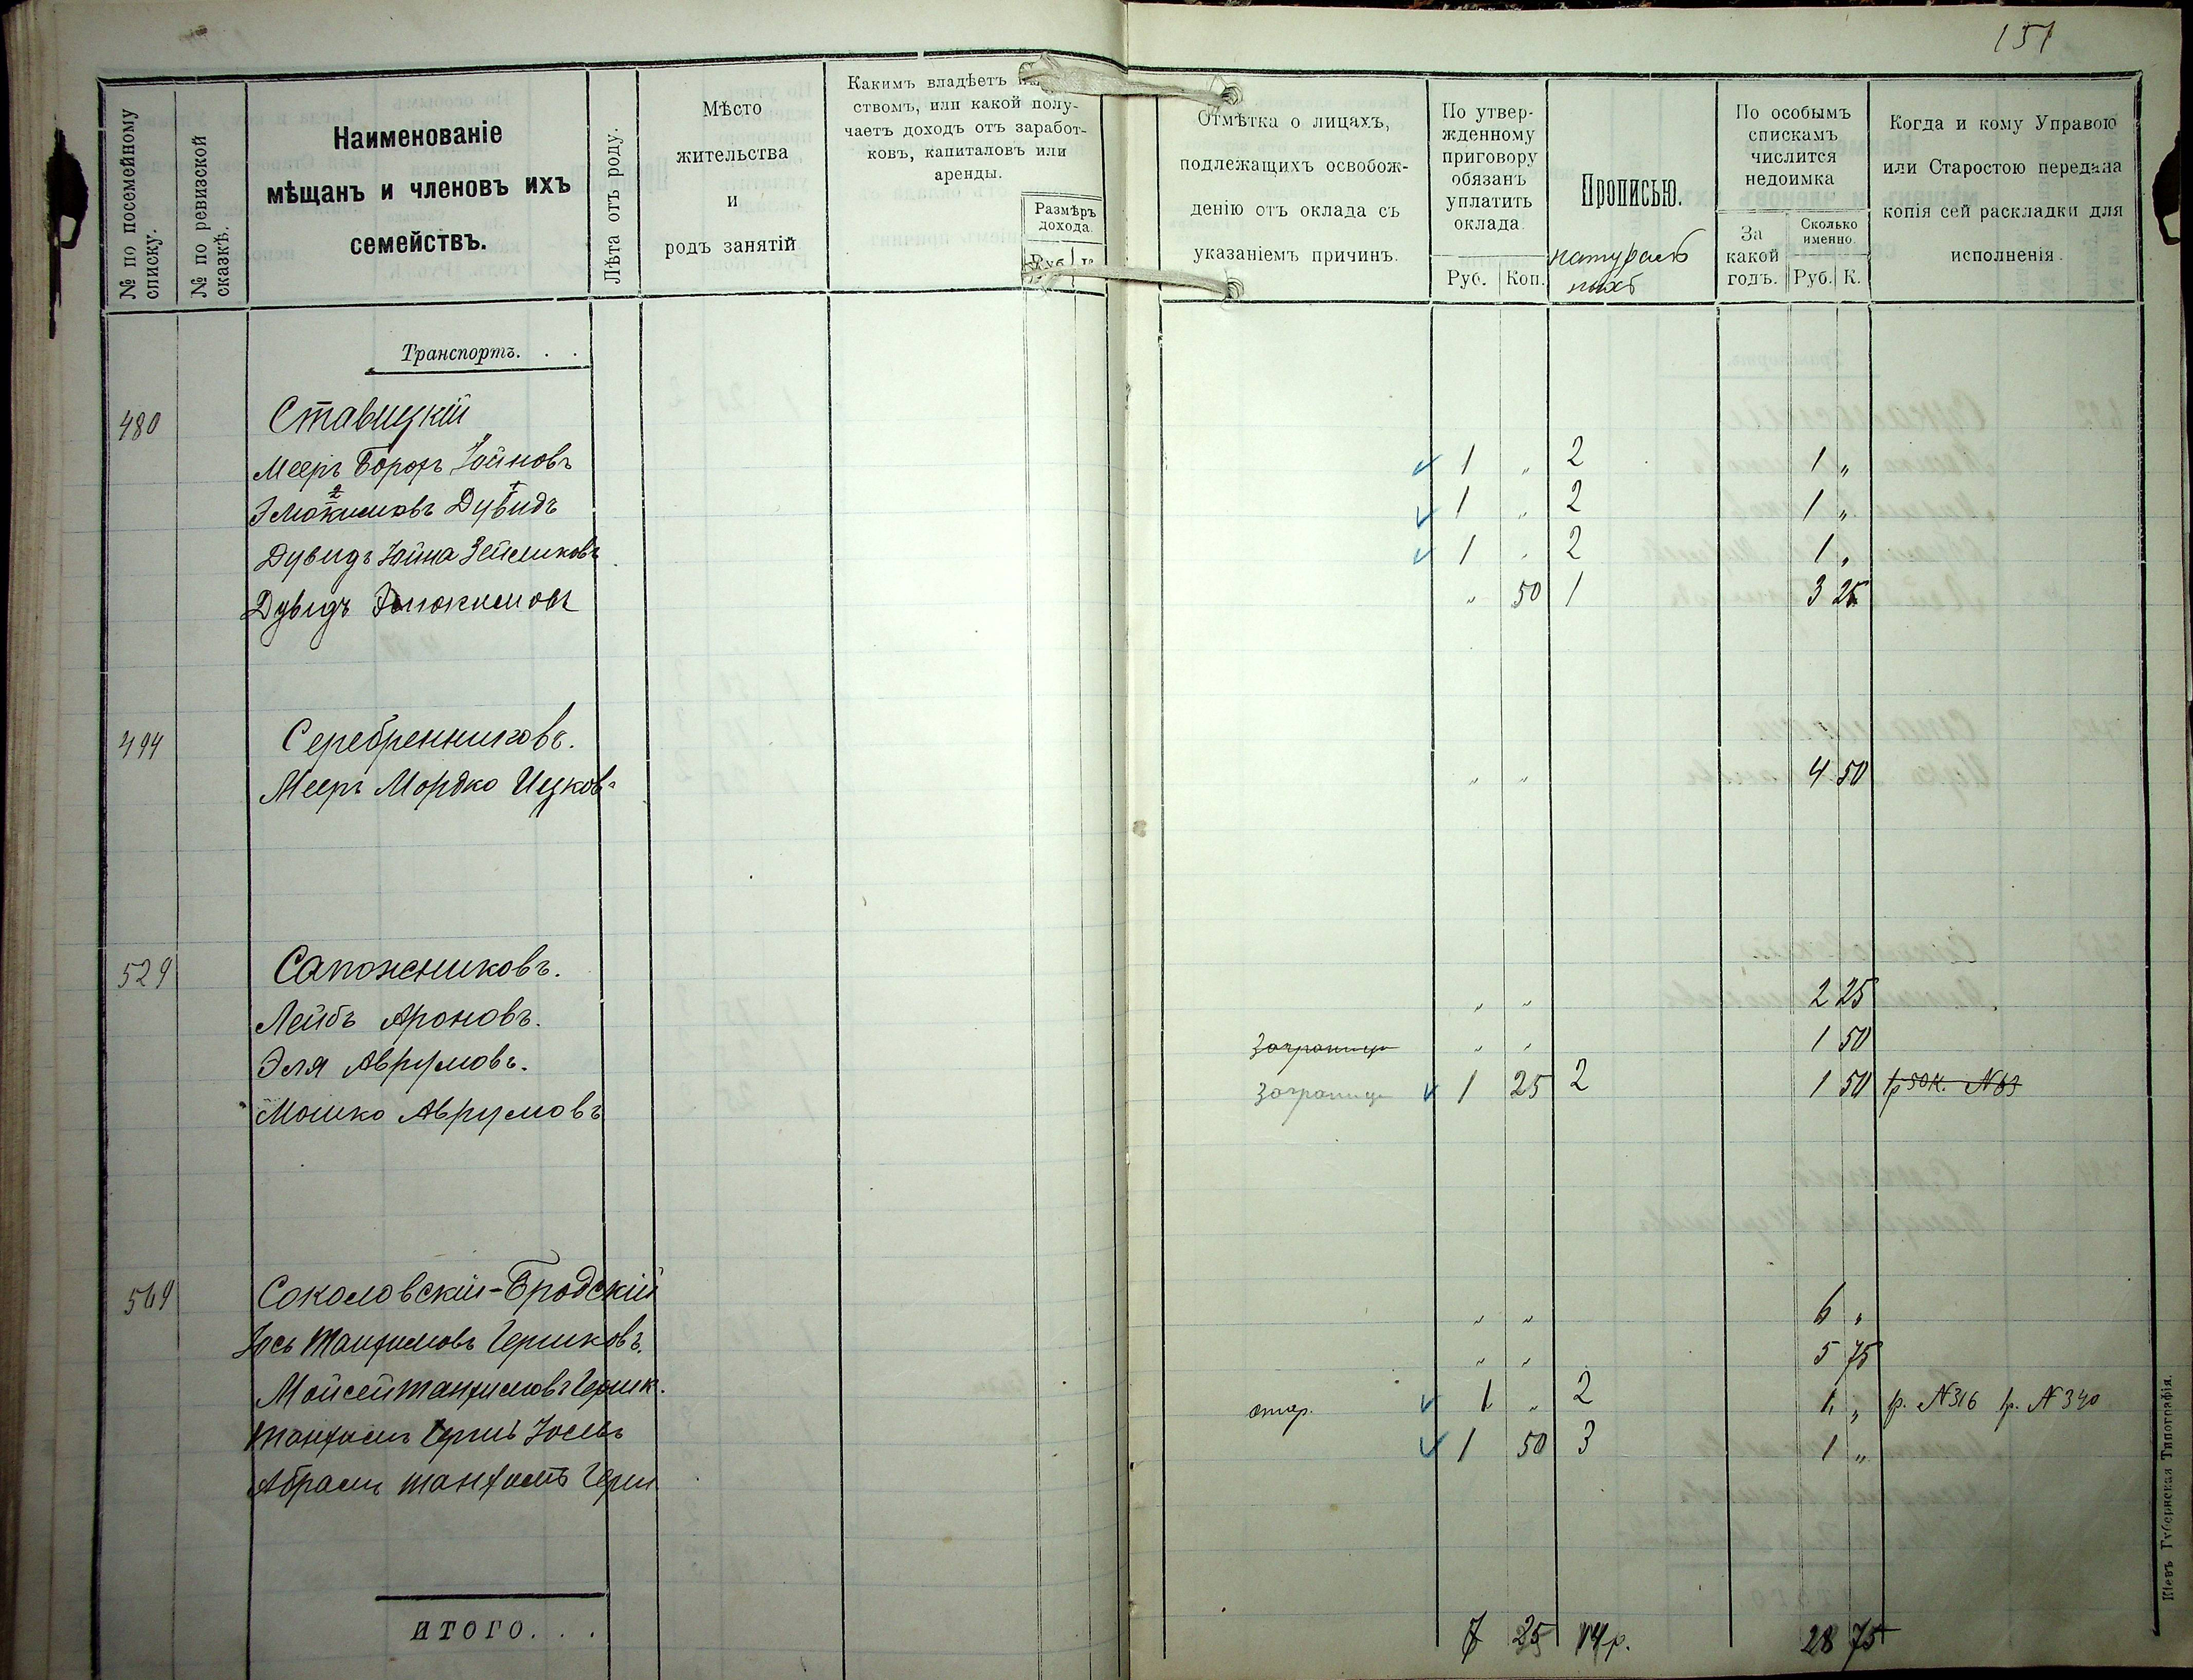 151
№ по посемейному списку.
№ по ревизской сказкѣ.
Наименованіе
мѣщанъ и членовъ ихъ
семействъ.
Лѣта отъ роду.
Мѣсто
жительства
и
родъ занятій
Какимъ владѣетъ
ствомъ, или какой полу-
чаетъ доходъ отъ заработ-
ковъ, капиталовъ или
аренды.
Размѣръ
дохода.
Руб.
Отмѣтка о лицахъ,
подлежащихъ освобож-
денію отъ оклада съ
указаніемъ причинъ.
По утвер-
жденному
приговору
обязанъ
уплатить
оклада.
Руб. Коп.
Прописью.
По особымъ
спискамъ
числится
недоимка
За
какой
годъ.
Сколько
именно.
Руб. К.
Когда и кому Управою
или Старостою передана
копія сей раскладки для
исполненія.
Транспортъ. . .
480 Ставицкій
Мееръ Борохъ Іойновъ 1 " 2 1 "
Дувидъ 1 " 2 1 "
Дувидъ Іойна 1 " 2 1 "
Дувидъ " 50 1 3 25
494 Серебренниковъ.
Мееръ Мордко Ицковъ " " 4 50
529 Сапожниковъ.
Лейбъ Ароновъ. " " 2 25
Эля Аврумовъ. заграницу " " 1 50
Мошко Аврумовъ заграницу 1 25 2 1 50 1р 50к. N 63
569 Соколовскій-Бродскій
Іось Танхимовъ Гершковъ. " " 6 "
Мойсей Танхимовъ Гершк. " " 5 75
Танхимъ Іосевъ 1 " 2 1 " р. N 316 р. N 340
Абрамъ 1 50 3 1 "
ИТОГО. . .
7 25 14 р. 28 75
Кіевъ Губернская Типографія.